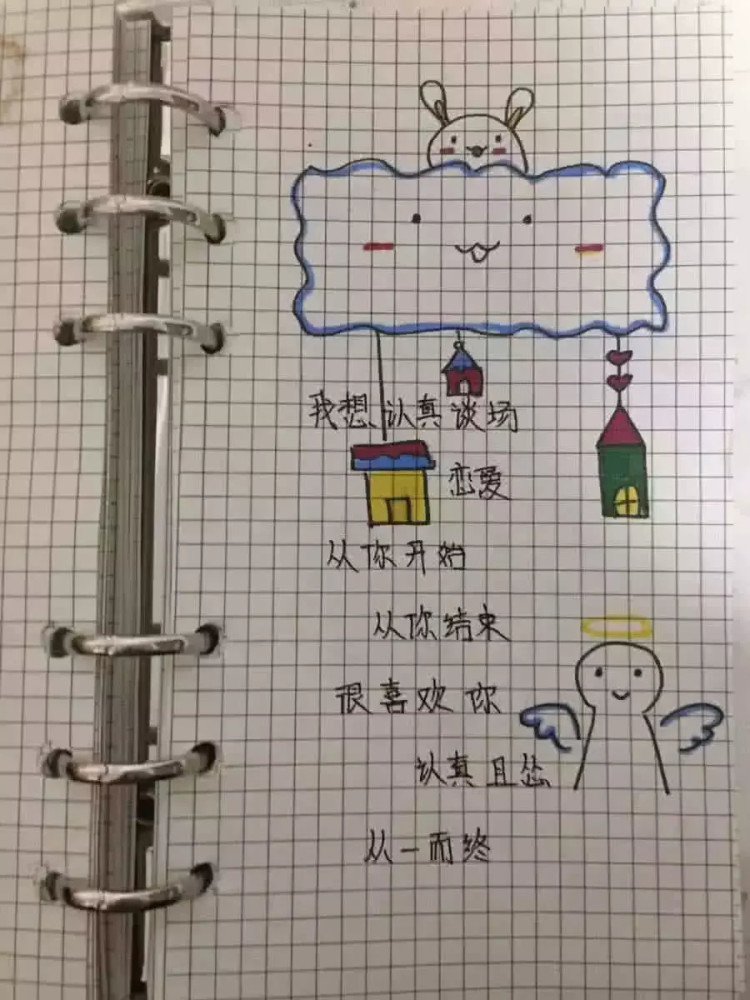 我想认真谈场
恋爱
从你开始
从你结束
很喜欢你
认真且怂
从一而终